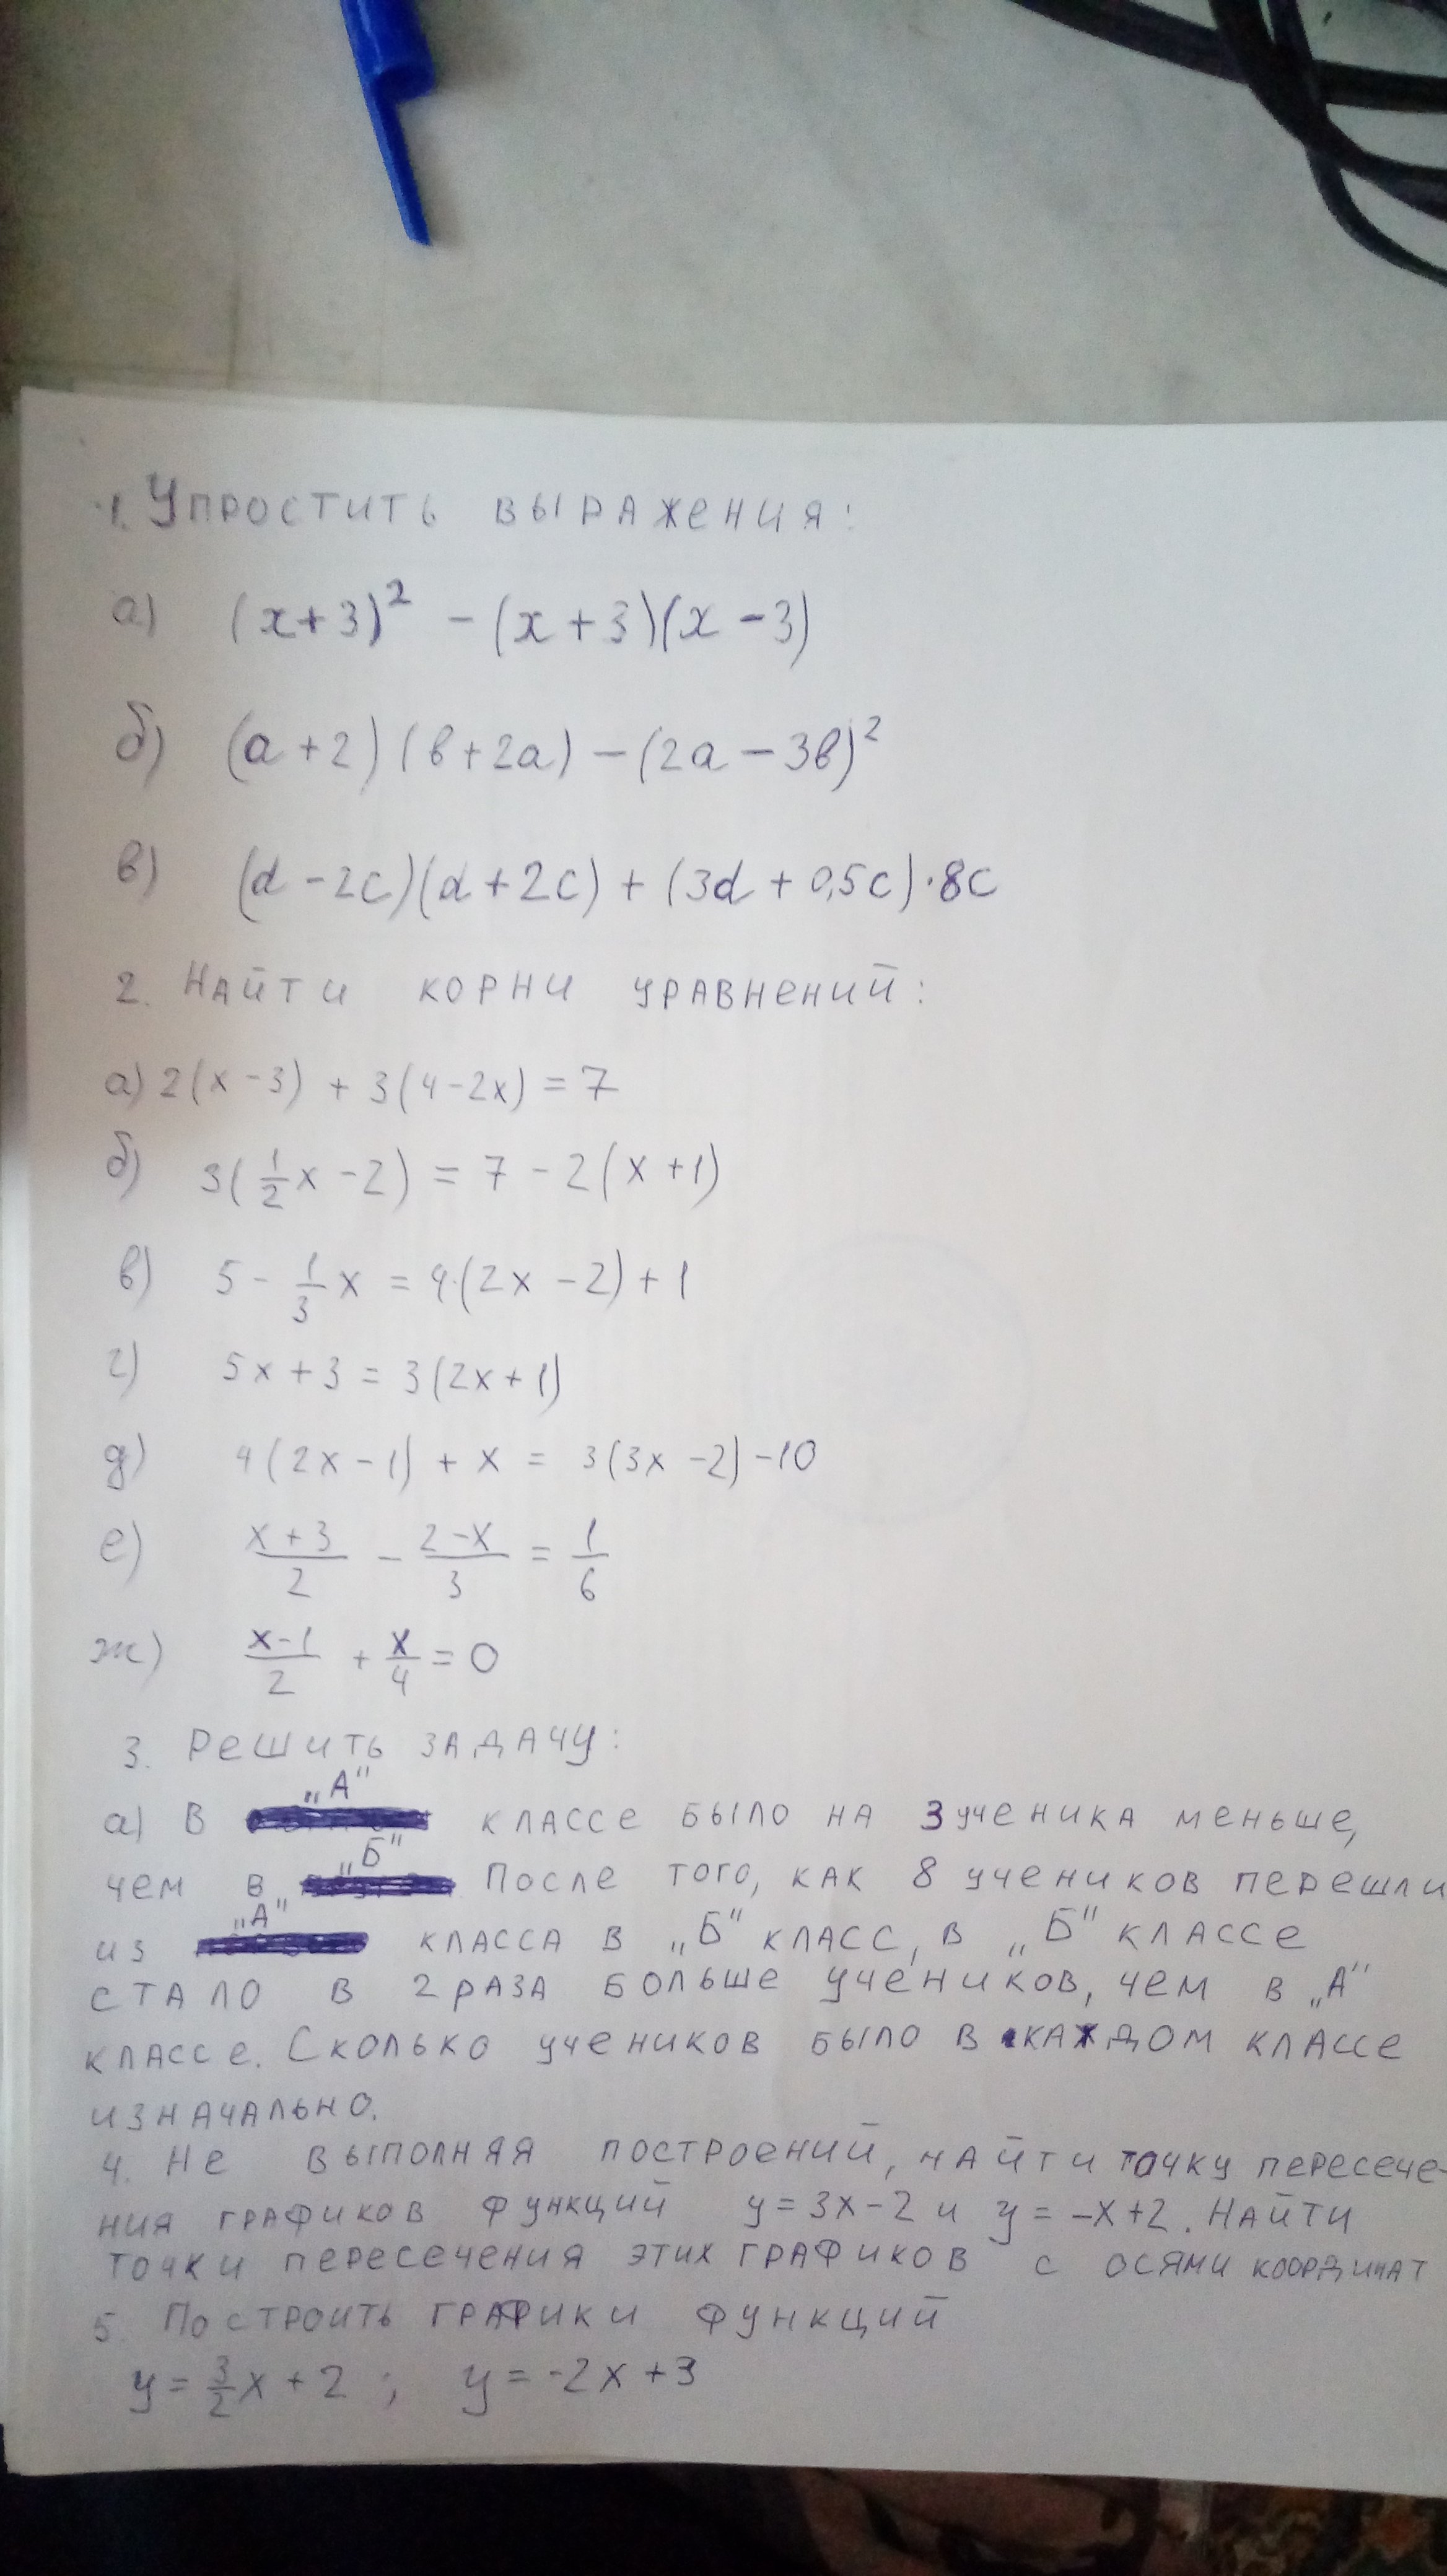 1. Упростить выражения:
а) (x+3)² - (x+3)(x-3)
б) (a+2)(b+2a) - (2a-3b)²
в) (d-2c)(d+2c) + (3d+0,5c)·8c
2. Найти корни уравнений:
а) 2(x-3) + 3(4-2x) = 7
б) 3(1/2x-2) = 7-2(x+1)
в) 5 - 1/3x = 4·(2x-2)+1
г) 5x+3 = 3(2x+1)
д) 4(2x-1)+x = 3(3x-2)-10
е) (x+3)/2 - (2-x)/3 = 1/6
ж) (x-1)/2 + x/4 = 0
3. Решить задачу:
а) В „А" классе было на 3 ученика меньше,
чем в „Б" После того, как 8 учеников перешли
из „А" класса в „Б" класс, в „Б" классе
стало в 2 раза больше учеников, чем в „А"
классе. Сколько учеников было в каждом классе
изначально.
4. Не выполняя построений, найти точку пересече-
ния графиков функций y=3x-2 и y=-x+2. Найти
точки пересечения этих графиков с осями координат
5. Построить графики функций
y=3/2x+2; y=-2x+3